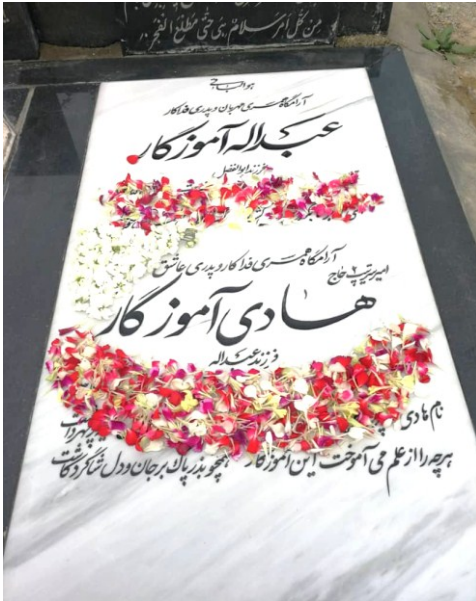 من كل أمر سلام هي حتى مطلع الفجر
هوالباقی
آرامگاه همسری مهربان و پدری فداکار
عبداله آموزگار
فرزند ابوالفضل
آرامگاه همسری فداکار و پدری عاشق
امیر سرتیپ ۲ حاج
هادی آموزگار
فرزند عبداله
نام هادی
هرچه را از علم می آموخت این آموزگار همچو بذر پاک بر جان و دل شاگرد کاشت